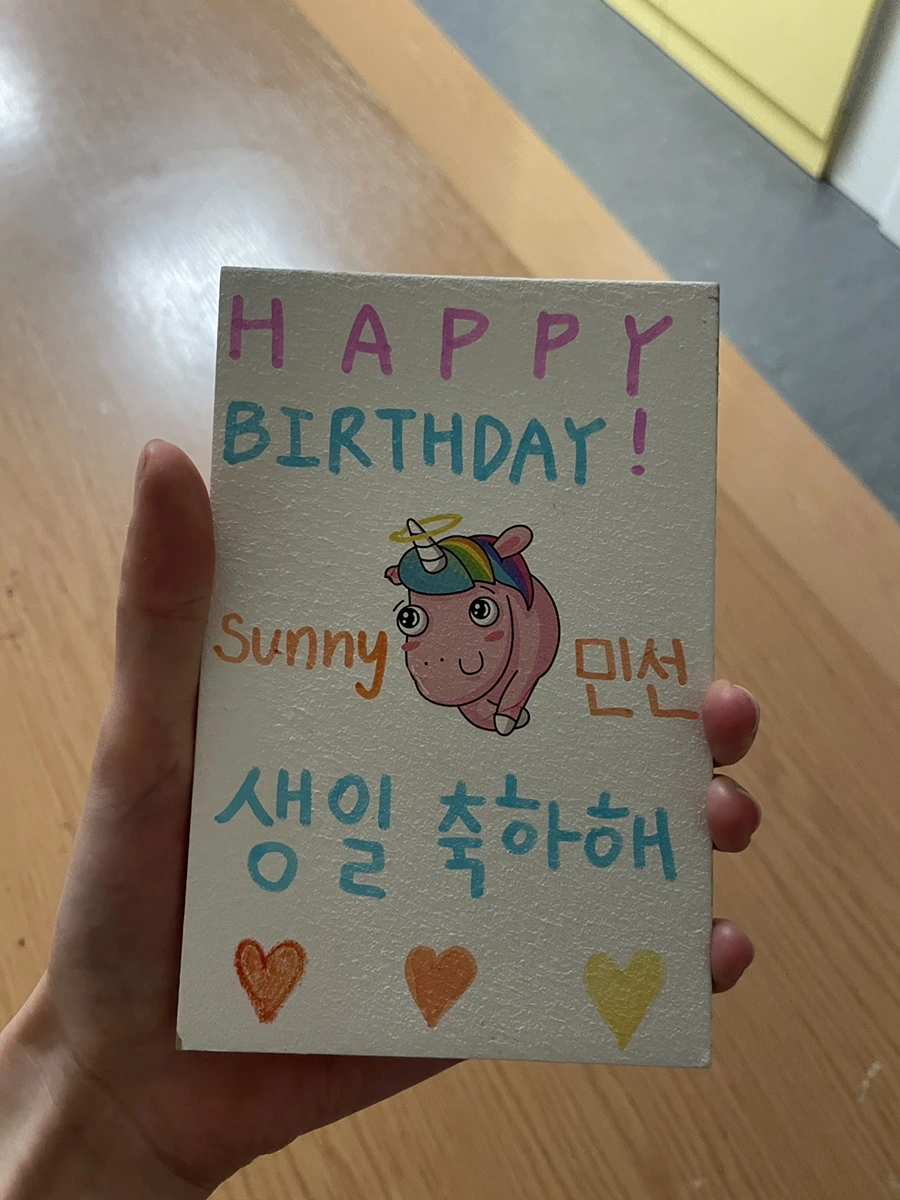 HAPPY
BIRTHDAY!
Sunny 민선
생일 축하해